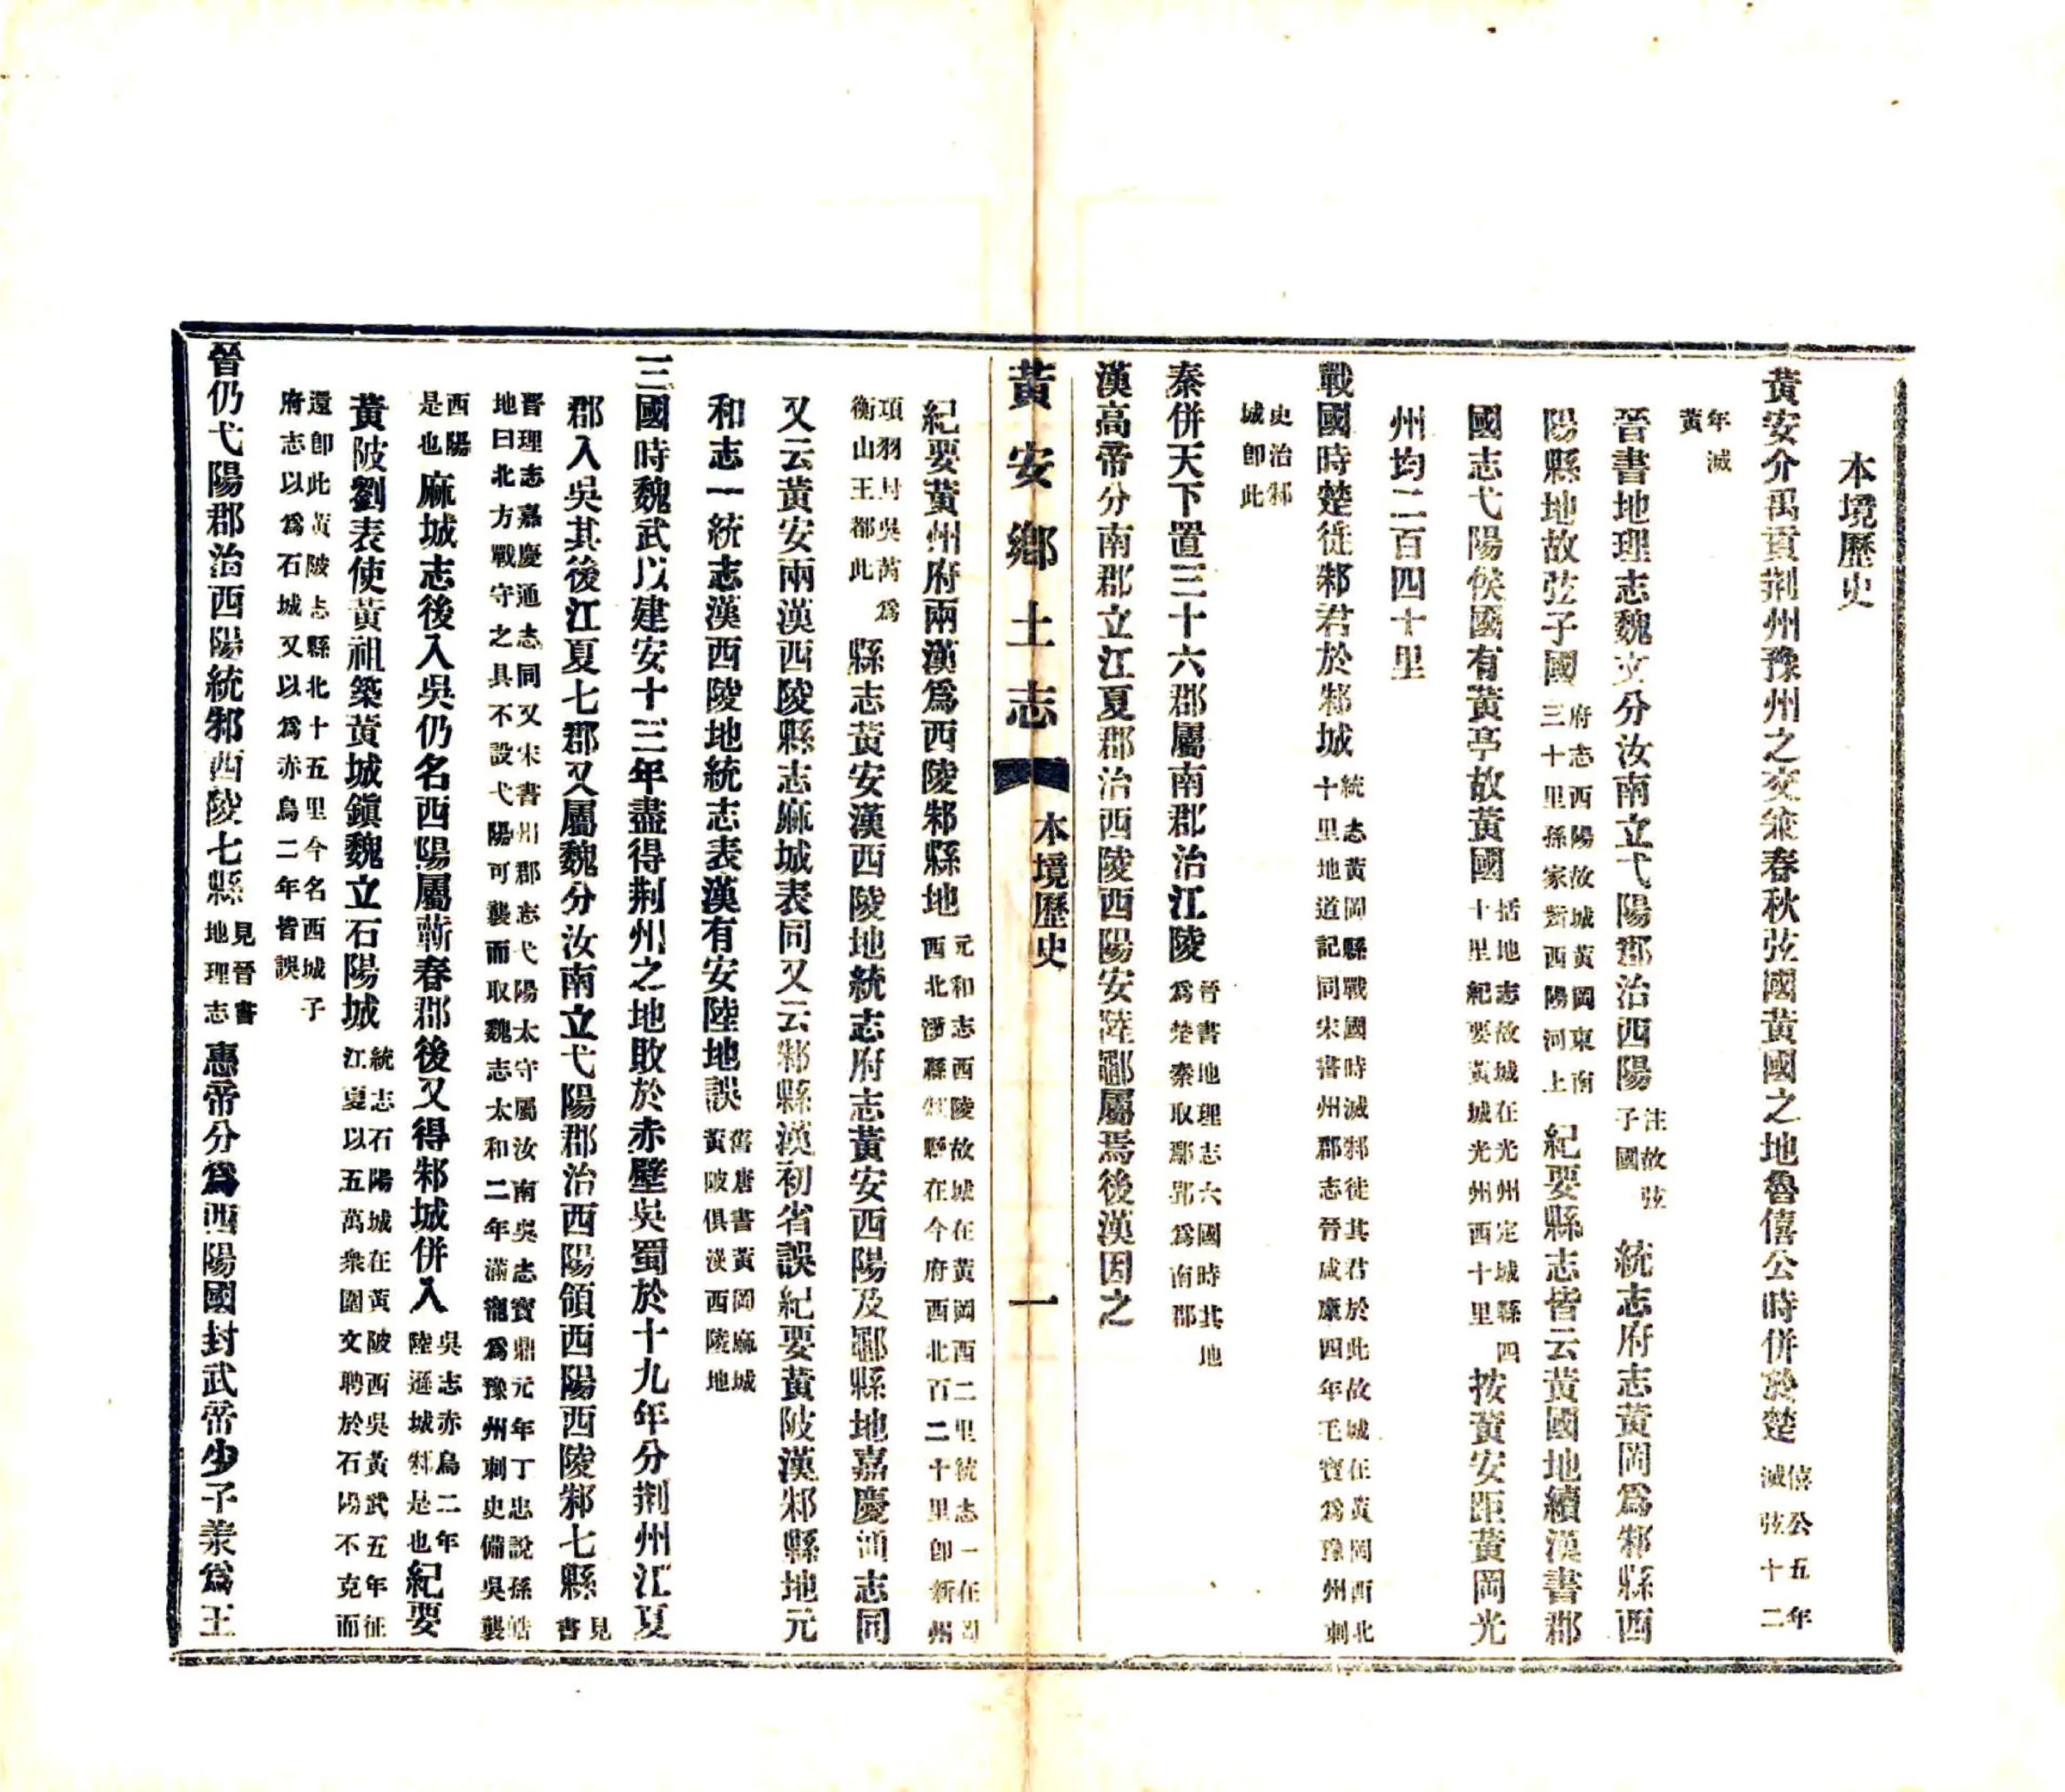 本境歷史
黃安介禹貢荊州豫州之交兼春秋弦國黃國之地魯僖公時併於楚僖公五年滅弦十二
年滅黃
晉書地理志魏文分汝南立弋陽郡治西陽注故弦子國統志府志黃岡爲邾縣西
陽縣地故弦子國府志西陽故城黃岡東南三十里孫家嘴西陽河上紀要縣志皆云黃國地續漢書郡
國志弋陽侯國有黃亭故黃國括地志故城在光州定城縣四十里紀要黃城光州西十里按黃安距黃岡光
州均二百四十里
戰國時楚徙邾君於邾城統志黃岡縣戰國時滅邾徙其君於此故城在黃岡西北十里地道記同宋書州郡志晉咸康四年毛寶爲豫州刺
史治邾城卽此
秦併天下置三十六郡屬南郡治江陵晉書地理志六國時其地爲楚秦取鄢郢爲南郡
漢高帝分南郡立江夏郡治西陵西陽安陸鄳屬焉後漢因之
黃安鄉土志 本境歷史 一
紀要黃州府兩漢爲西陵邾縣地元和志西陵故城在黃岡西二里統志一在西北邾縣在今府西北百二十里卽新州
項羽封吳芮爲衡山王都此縣志黃安漢西陵地統志府志黃安西陽及鄳縣地嘉慶通志同
又云黃安兩漢西陵縣志麻城表同又云邾縣漢初省誤紀要黃陂漢邾縣地元
和志一統志漢西陵地統志表漢有安陸地誤舊唐書黃岡麻城黃陂俱漢西陵地
三國時魏武以建安十三年盡得荊州之地敗於赤壁吳蜀於十九年分荊州江夏
郡入吳其後江夏七郡又屬魏分汝南立弋陽郡治西陽領西陽西陵邾七縣見書
晉理志嘉慶通志同又宋書州郡志弋陽太守屬汝南吳志寶鼎元年丁忠說孫皓地曰北方戰守之具不設弋陽可襲而取魏志太和二年滿寵爲豫州刺史備吳襲
西陽是也麻城志後入吳仍名西陽屬蘄春郡後又得邾城併入吳志赤烏二年陸遜城邾是也紀要
黃陂劉表使黃祖築黃城鎭魏立石陽城統志石陽城在黃陂西吳黃武五年征江夏以五萬衆圍文聘於石陽不克而
還卽此黃陂志縣北十五里今名西城子府志以爲石城又以爲赤烏二年皆誤
晉仍弋陽郡治西陽統邾西陵七縣見晉書地理志惠帝分爲西陽國封武帝少子羕爲王